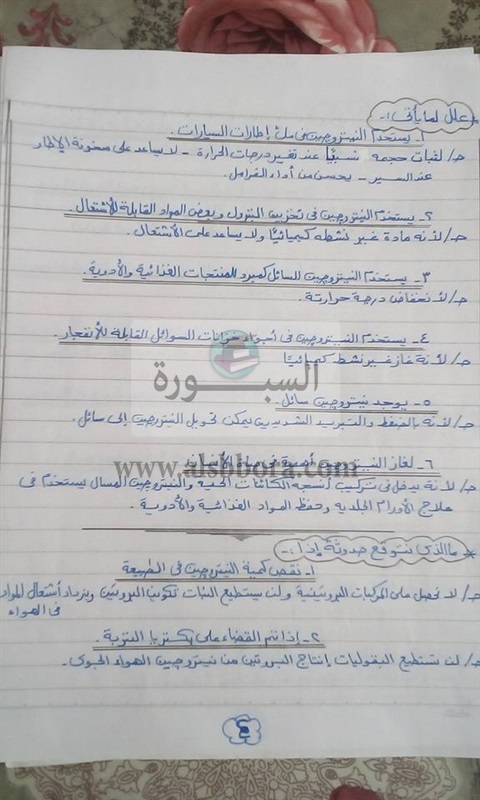 * علل لما يأتى :-
١- يستخدم النيتروجين فى ملئ إطارات السيارات.
جـ/ لثبات حجمه نسبيًا عند تغير درجات الحرارة - لا يساعد على سخونة الإطار
عند السير - يحسن من أداء الفرامل.
٢- يستخدم النيتروجين فى تخزين البترول وبعض المواد القابلة للأشتعال.
جـ/ لأنه مادة غير نشطه كيميائيًا ولا يساعد على الأشتعال.
٣- يستخدم النيتروجين السائل كمبرد للمنتجات الغذائية والأدوية.
جـ/ لأنخفاض درجة حرارتة.
٤- يستخدم النيتروجين فى أجواء خزانات السوائل القابلة للأنفجار.
جـ/ لأنة غاز غير نشط كيميائيًا
السبورة
٥- يوجد نيتروجين سائل.
جـ/ لأنه بالضغط والتبريد الشديدين يمكن تحويل النيتروجين إلى سائل.
٦- لغاز النيتروجين أهمية فى حياة الأنسان
www.alsbbora.com
جـ/ لأنة يدخل فى تركيب أنسجة الكائنات الحية والنيتروجين المسال يستخدم فى
علاج الأورام الجلدية وحفظ المواد الغذائية والأدوية.
* ماالذى تتوقع حدوثة إذا :-
١- نقص كمية النيتروجين فى الطبيعة
جـ/ لا نحصل على المركبات البروتينية ولن يستطيع النبات تكوين البروتين ويزداد أشتعال المواد
فى الهواء
٢- إذا تم القضاء على بكتريا التربة.
جـ/ لن تستطيع البقوليات إنتاج البروتين من نيتروجين الهواء الجوى.
٤